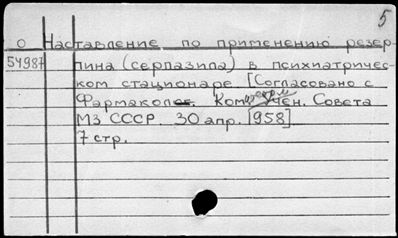 5
О Наставление по применению резер-
54987 пина (серпазила) в психиатричес-
ком стационаре [Согласовано с
Фармакол. Ком. Учен. Совета
МЗ СССР. 30 апр. 1958]
7 стр.